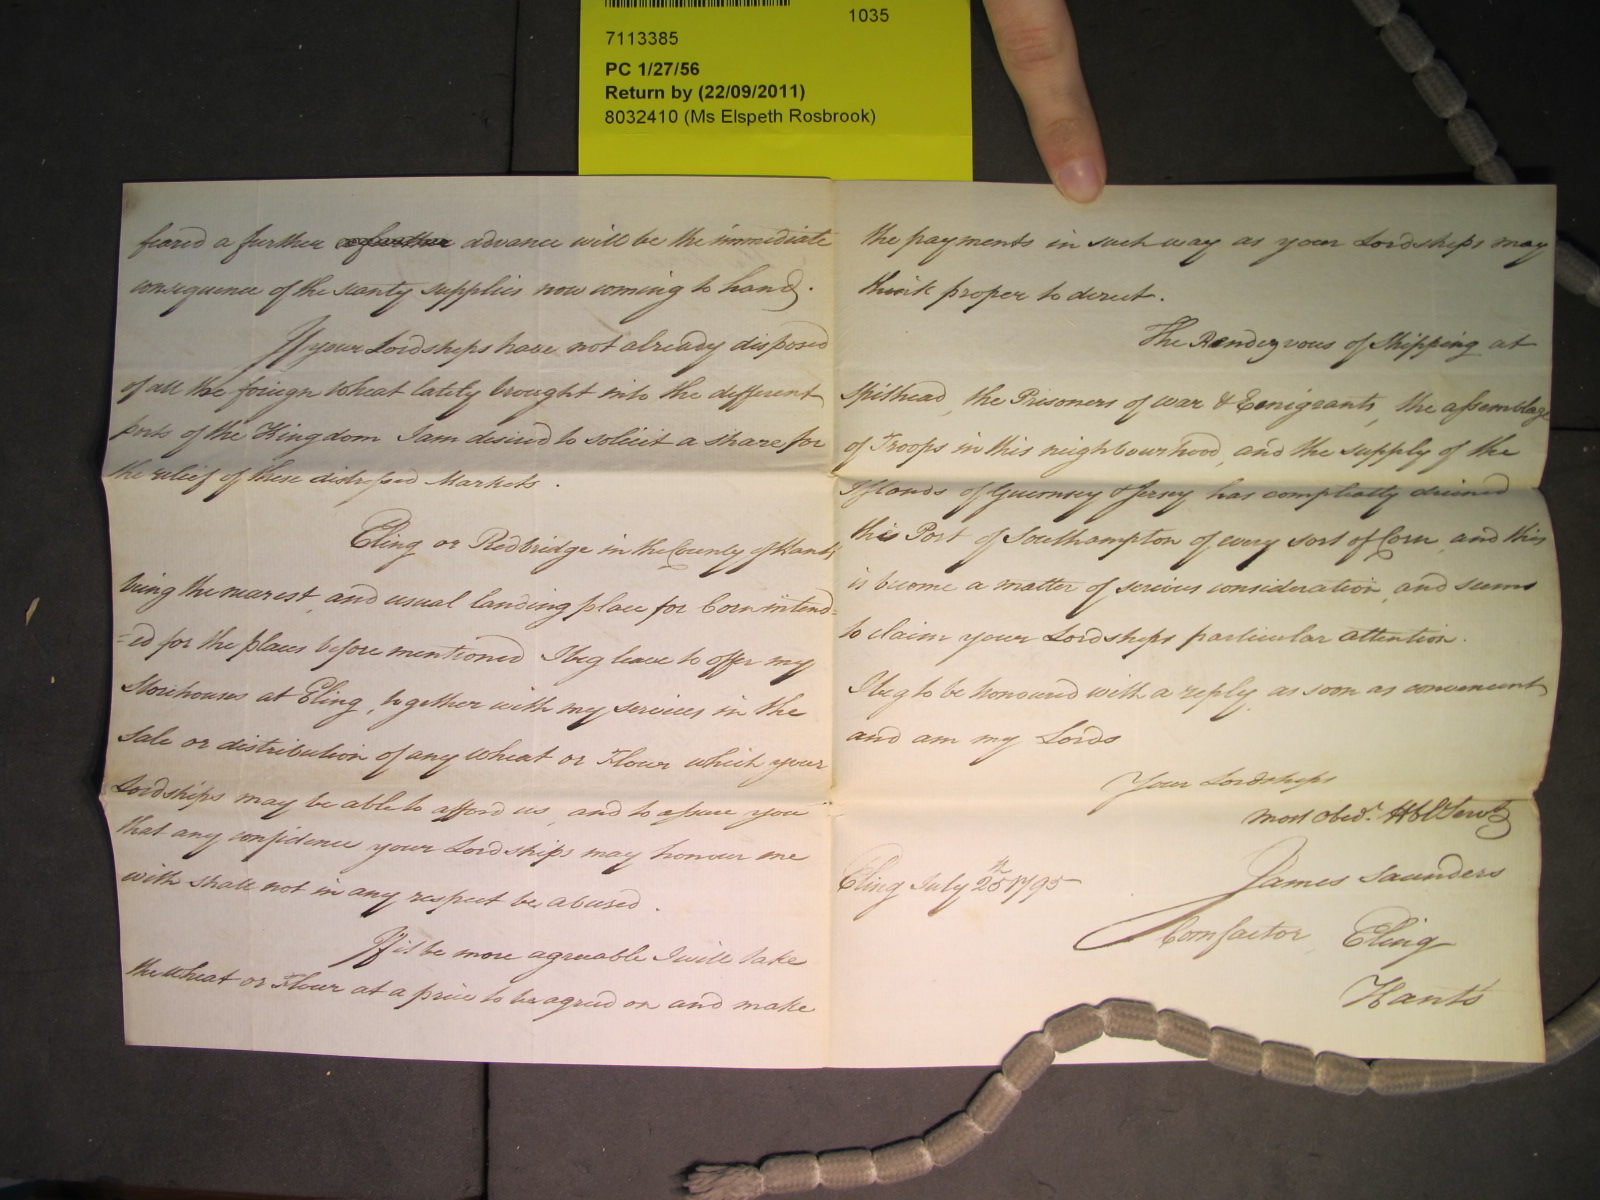 1035
7113385
PC 1/27/56
Return by (22/09/2011)
8032410 (Ms Elspeth Rosbrook)
feared a further a further advance will be the immediate
consequence of the scanty supplies now coming to hand.
If your Lordships have not already disposed
of all the foreign Wheat lately brought into the different
ports of the Kingdom I am desired to solicit a share for
the relief of these distressed Markets.
Eling or Redbridge in the County of Hants
being the nearest, and usual landing place for Corn intend=
=ed for the places before mentioned I beg leave to offer my
Storehouses at Eling, together with my services in the
Sale or distribution of any Wheat or Flour which your
Lordships may be able to afford us, and to assure you
that any confidence your Lordships may honour me
with shall not in any respect be abused.
If it be more agreeable I will take
the Wheat or Flour at a price to be agreed on and make
the payments in such way as your Lordships may
think proper to direct.
The Rendezvous of Shipping at
Spithead, the Prisoners of war & Emigrants, the assemblage
of Troops in this neighbourhood, and the supply of the
Islands of Guernsey & Jersey has compleatly drained
this Port of Southampton of every sort of Corn, and this
is become a matter of serious consideration, and seems
to claim your Lordships particular attention.
I beg to be honoured with a reply, as soon as convenient
and am my Lords
Your Lordships
most Obedt. Hble Servt
James Saunders
Eling July 25th 1795
Cornfactor Eling
Hants